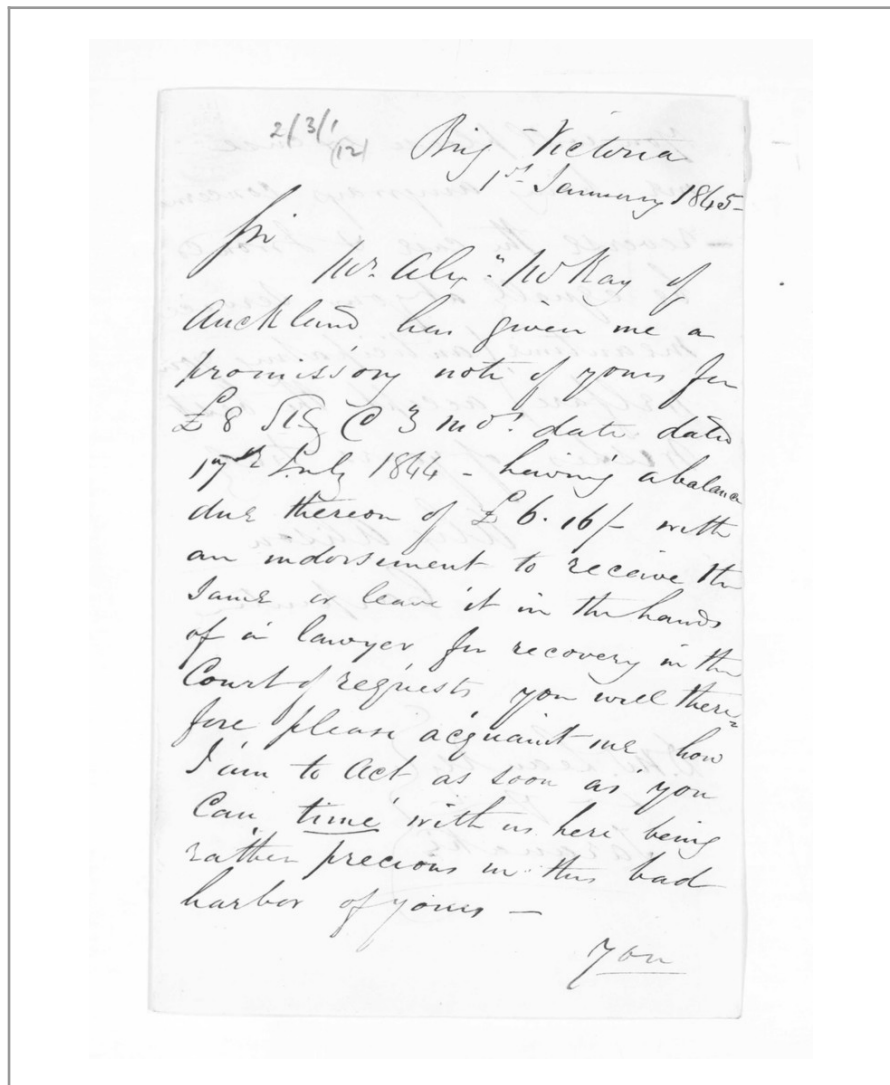 2/3/1
/12/
Brig Victoria
1st January 1845-
Sir
Mr. Alexr. McKay of
Auckland has given me a
promissory note of yours for
£8 Stg @ 3 mos. date dated
17th July 1844 - having a balance
due thereon of £6.16/- with
an indorsement to receive the
same or leave it in the hands
of a lawyer for recovery in the
Court of requests you will there=
fore please acquaint me how
I am to act as soon as you
can time with us here being
rather precious in this bad
harbor of yours —
you